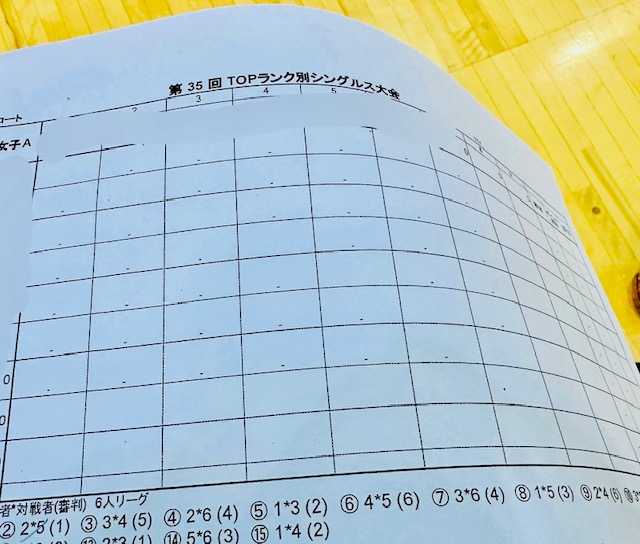 第 35 回 TOPランク別シングルス大会
コート 2 3 4 5
女子A
0
0
者*対戦者(審判) 6人リーグ
② 2*5 (1) ③ 3*4 (5) ④ 2*6 (4) ⑤ 1*3 (2) ⑥ 4*5 (6) ⑦ 3*6 (4) ⑧ 1*5 (3) ⑨ 2*4 (6)
2*3 (1) ⑭ 5*6 (3) ⑮ 1*4 (2)